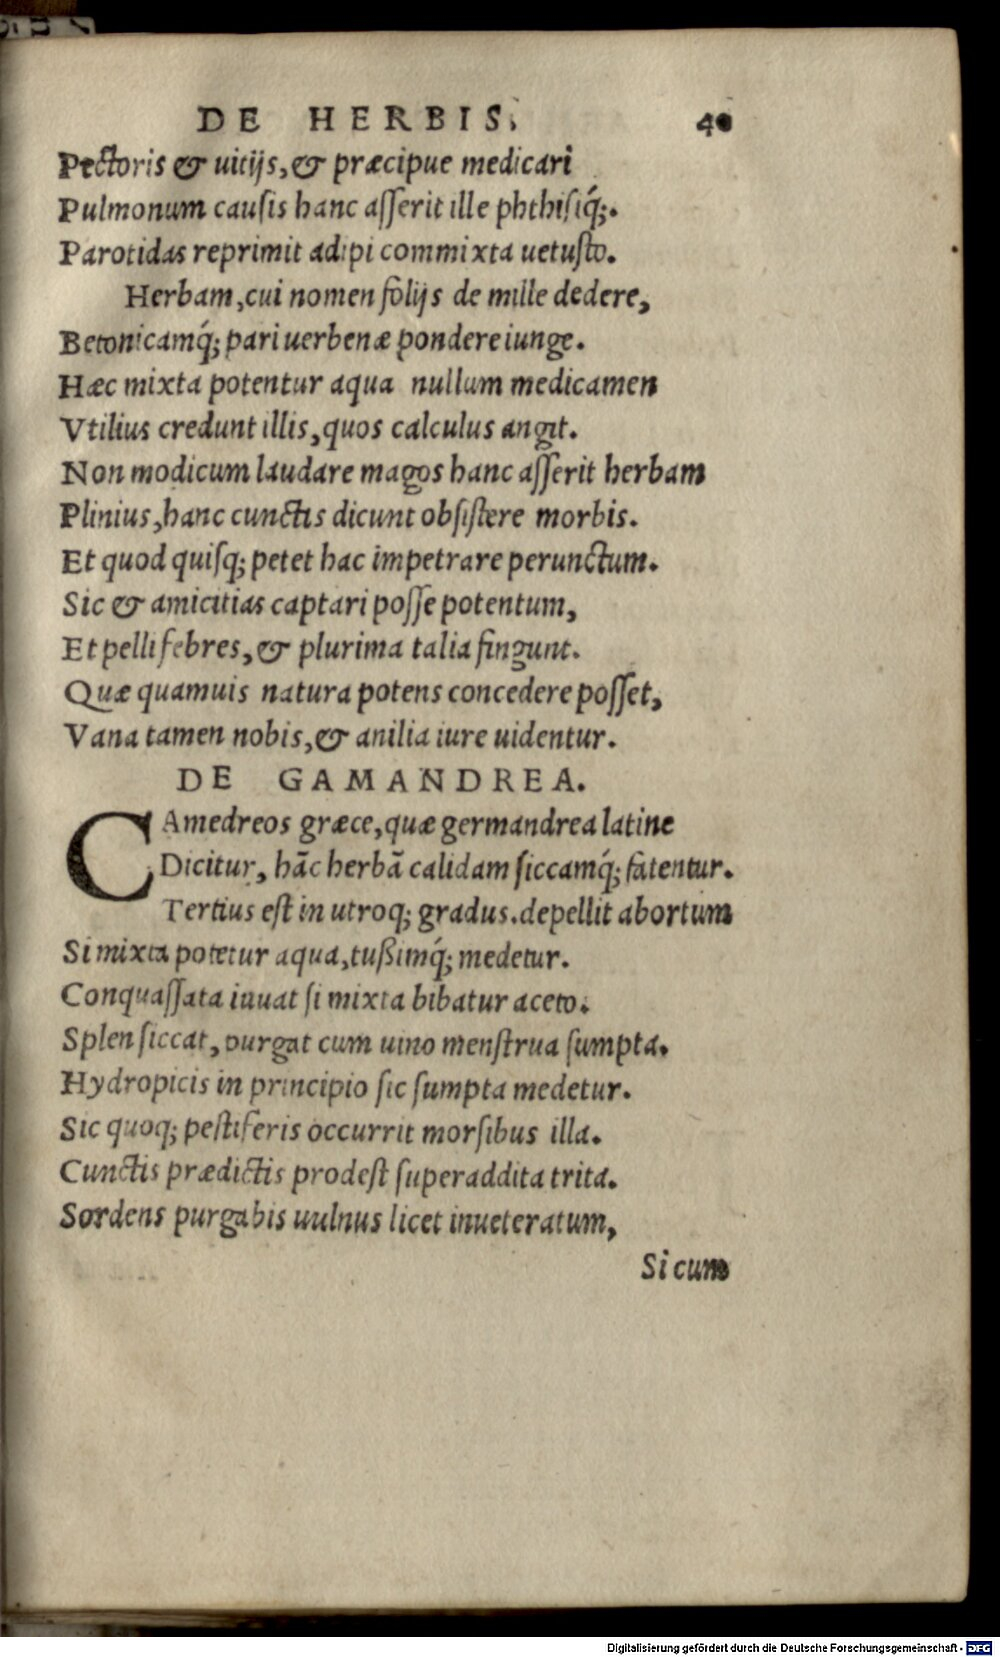 DE HERBIS. 40
Pectoris & uitijs, & præcipue medicari
Pulmonum causis hanc asserit ille phthisiq́;.
Parotidas reprimit adipi commixta uetusto.
Herbam, cui nomen folijs de mille dedere,
Betonicamq́; pari uerbenæ pondere iunge.
Hæc mixta potentur aqua nullum medicamen
Vtilius credunt illis, quos calculus angit.
Non modicum laudare magos hanc asserit herbam
Plinius, hanc cunctis dicunt obsistere morbis.
Et quod quisq; petet hac impetrare perunctum.
Sic & amicitias captari posse potentum,
Et pelli febres, & plurima talia fingunt.
Quæ quamuis natura potens concedere posset,
Vana tamen nobis, & anilia iure uidentur.
DE GAMANDREA.
CAmedreos græce, quæ germandrea latine
Dicitur, hāc herbā calidam siccamq́; fatentur.
Tertius est in utroq; gradus. depellit abortum
Si mixta potetur aqua, tußimq́; medetur.
Conquassata iuuat si mixta bibatur aceto.
Splen siccat, purgat cum uino menstrua sumpta.
Hydropicis in principio sic sumpta medetur.
Sic quoq; pestiferis occurrit morsibus illa.
Cunctis prædictis prodest superaddita trita.
Sordens purgabis uulnus licet inueteratum,
Si cum
Digitalisierung gefördert durch die Deutsche Forschungsgemeinschaft - DFG